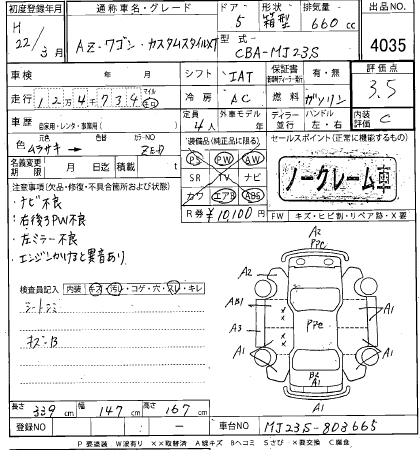 初度登録年月 通称車名・グレード ドア 形状 排気量 出品No.
H 22/3月 AZ-ワゴン・カスタムスタイルXT 5 箱型 660cc
型式 CBA-MJ23S 4035
車検 年 月 シフト IAT 保証書 有・無 評価点
走行 124734 マイル キロ 冷房 AC 燃料 ガソリン 3.5
車歴 自家用・レンタ・事業用( ) 定員 4人 外車モデル 年 ディーラー 並行 ハンドル 左・右 内装評価 C
色 ムラサキ → 色替 カラーNo. ZED 装備品(純正品に限る) セールスポイント(正常に機能するもの)
PS PW AW
名義変更期限 月 日迄 積載 t SR TV ナビ ノークレーム車
カワ エアB ABS
注意事項(欠品・修復・不具合箇所および状態) R券 ¥10100円 FW キズ・ヒビ割・リペア跡・X要
・ナビ不良
・右後ろPW不良
・左ミラー不良
・エンジンかけると異音あり
検査員記入 内装 キズ・汚レ・コゲ・穴・スレ・キレ
シートシミ
キズ・B
A2
PPe
A2 A2
AB1 PPe A1
A3
A1 A1
B2
A1
長さ 339cm 幅 147cm 高さ 167cm
登録NO — 車台NO MJ23S-803665
P要塗装 W波有り XX取替済 A線キズ Bヘコミ Sさび X要交換 C腐食